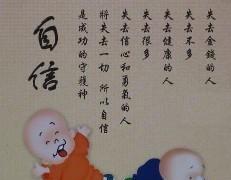 失去金錢的人
失去不多
失去健康的人
失去很多
失去信心和勇氣的人
將失去一切 所以自信
是成功的守護神
自信